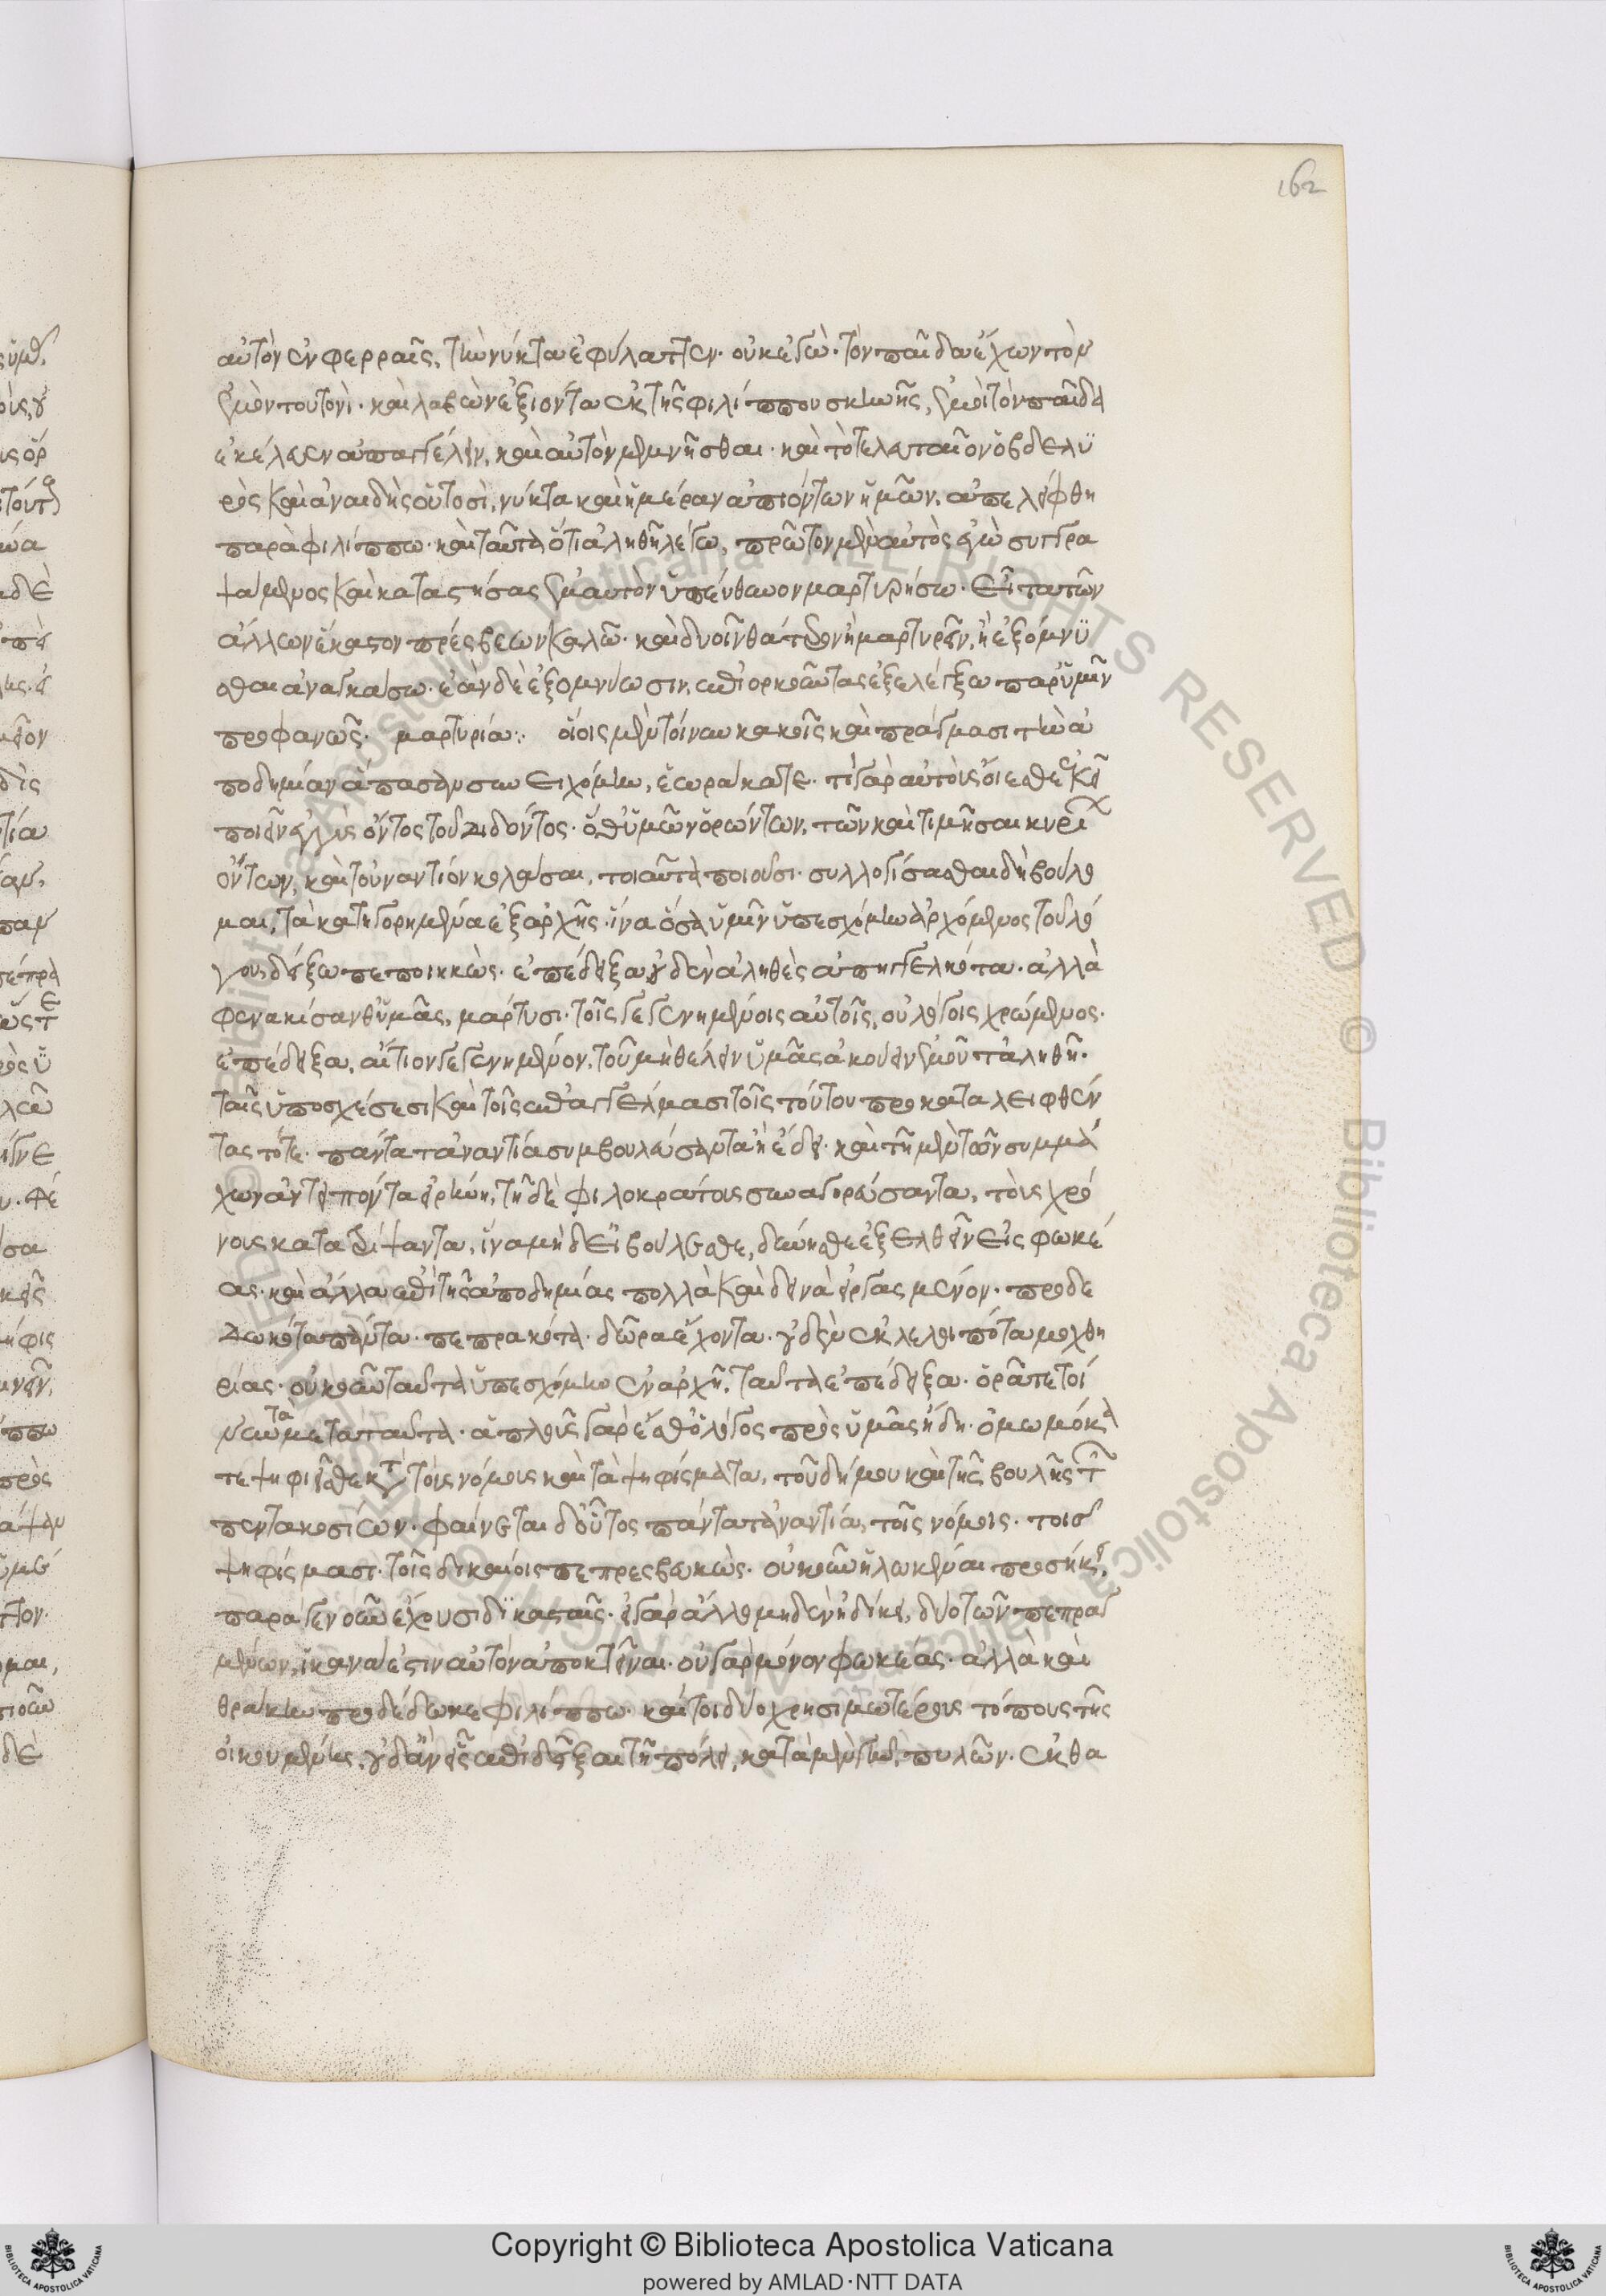 162
αὐτὸν ἐν φερραῖς, τὴν νύκτα ἐφύλαττεν· οὐκ ἐγὼ· τὸν παῖδα ἔχων τὸν
ἐμὸν τουτονί· καὶ λαβὼν ἐξιόντα ἐκ τῆς φιλίππου σκηνῆς, ἐμοὶ τὸν παῖδα
ἐκέλευεν ἀπαγγέλειν, καὶ αὐτὸν μεμνῆσθαι· καὶ τὸ τελευταῖον ὁ βδελυ
ρὸς καὶ ἀναιδὴς οὑτοσὶ, νύκτα καὶ ἡμέραν ἀπιόντων ἡμῶν, ἀπελείφθη
παρὰ φιλίππω· καὶ ταῦτα ὅτι ἀληθῆ λέγω, πρῶτον μὲν αὐτὸς ἐγὼ συγγρα
ψάμενος καὶ καταστήσας ἐμαυτὸν ὑπεύθυνον μαρτυρήσω· εἶτα τῶν
ἄλλων ἕκαστον πρέσβεων καλῶ· καὶ δυοῖν θάτερον ἢ μαρτυρεῖν, ἢ ἐξόμνυ
σθαι ἀναγκάσω· ἐὰν δὲ ἐξομνύωσιν, ἐπιορκοῦντας ἐξελέγξω παρ' ὑμῖν
προφανῶς· μαρτυρία:· οἵοις μὲν τοίνυν κακοῖς καὶ πράγμασι τὴν ἀ
ποδημίαν ἅπασαν συνειχόμην, ἑωράκατε· τί γὰρ αὐτοὺς οἴεσθε ἐκεῖ
ποιεῖν ἐγγὺς ὄντος τοῦ διδόντος· ὅθ' ὑμῶν ὁρώντων, τῶν καὶ τιμῆσαι κυρί
ὄντων, καὶ τοὐναντίον κολάσαι, τοιαῦτα ποιοῦσι· συλλογίσασθαι δὴ βούλο
μαι, τὰ κατηγορημένα ἐξ ἀρχῆς· ἵνα ὅσα ὑμῖν ὑπεσχόμην ἀρχόμενος τοῦ λό
γου, δείξω πεποιηκὼς· ἐπέδειξα οὐδὲν ἀληθὲς ἀπηγγελκότα· ἀλλὰ
φενακίσανθ' ὑμᾶς, μάρτυσι· τοῖς γεγενημένοις αὐτοῖς, οὐ λόγοις χρώμενος·
ἐπέδειξα, αἴτιον γεγενημένον, τοῦ μὴ θέλειν ὑμᾶς ἀκούειν ἐμοῦ τἀληθῆ·
ταῖς ὑποσχέσεσι καὶ τοῖς ἐπαγγέλμασι τοῖς τούτου προκαταλειφθέν
τας τότε· πάντα τἀναντία συμβουλεύσαντα ἢ ἔδει· καὶ τῇ μὲν τῶν συμμά
χων ἀντειπόντα εἰρήνη, τῇ δὲ φιλοκράτους συναγορεύσαντα, τοὺς χρό
νους κατατρίψαντα, ἵνα μηδ' εἰ βούλεσθε, δύνησθε ἐξελθεῖν εἰς φωκέ
ας· καὶ ἄλλα ἐπὶ τῆς ἀποδημίας πολλὰ καὶ δεινὰ εἰργασμένον· προδε
δωκότα πάντα· πεπρακότα· δῶρα ἔχοντα· οὐδὲν ἐκλελοιπότα μοχθη
ρίας· οὐκοῦν ταῦτα ὑπεσχόμην ἐν ἀρχῆ, ταῦτα ἐπέδειξα· ὁρᾶτε τοί
νυν τὰ μετὰ ταῦτα· ἁπλοῦς γὰρ ἔσθ' ὁ λόγος πρὸς ὑμᾶς ἤδη· ὀμωμόκα
τε ψηφιεῖσθε κατὰ τοὺς νόμους καὶ τὰ ψηφίσματα, τοῦ δήμου καὶ τῆς βουλῆς τῶν
πεντακοσίων· φαίνεται δ' οὗτος πάντα τἀναντία, τοῖς νόμοις· τοῖσ
ψηφίσμασι· τοῖς δικαίοις πεπρεσβευκὼς· οὐκοῦν ἡλωκέναι προσήκει,
παρά γε νοῦν ἔχουσι δικασταῖς· εἰ γὰρ ἄλλο μηδὲν ἠδίκει, δύο τῶν πεπραγ
μένων, ἱκανά ἐστιν αὐτὸν ἀποκτεῖναι· οὐ γὰρ μόνον φωκέας· ἀλλὰ καὶ
θράκην προδέδωκε φιλίππω· καίτοι δύο χρησιμωτέρους τόπους τῆς
οἰκουμένης, οὐδ' ἂν εἷς ἐπιδεῖξαι τῇ πόλει, κατὰ μὲν γῆν, πυλῶν· ἐκ θα